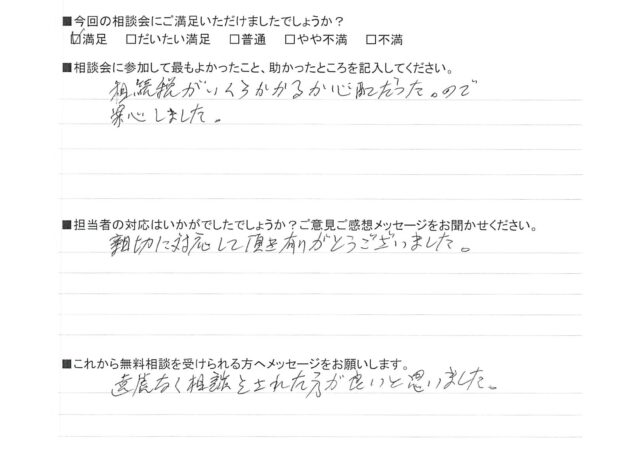 ■今回の相談会にご満足いただけましたでしょうか？
☑満足 □だいたい満足 □普通 □やや不満 □不満
■相談会に参加して最もよかったこと、助かったところを記入してください。
相続税がいくらかかるか心配だった。ので
安心しました。
■担当者の対応はいかがでしたでしょうか？ご意見ご感想メッセージをお聞かせください。
親切に対応して頂き有りがとうございました。
■これから無料相談を受けられる方へメッセージをお願いします。
遠慮なく相談をされた方が良いと思いました。